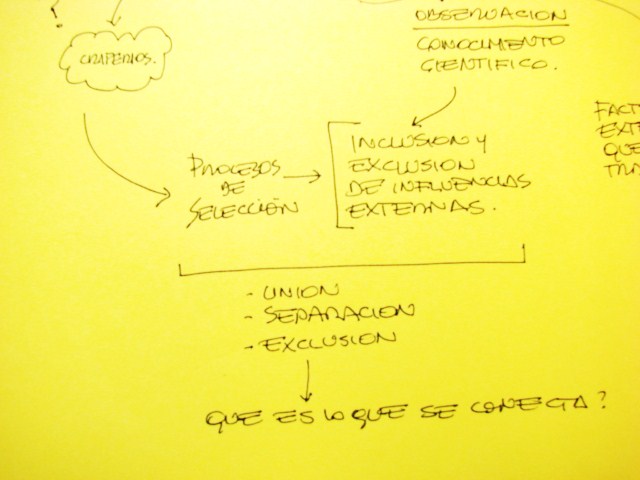 ?
OBSERVACION
CONOCIMIENTO
CIENTIFICO.
CRITERIOS.
PROCESOS
DE
SELECCIÓN
INCLUSION Y
EXCLUSION
DE INFLUENCIAS
EXTERNAS.
FACT
EXTE
QUE
TRA
- UNION
- SEPARACION
- EXCLUSION
QUE ES LO QUE SE CONECTA?